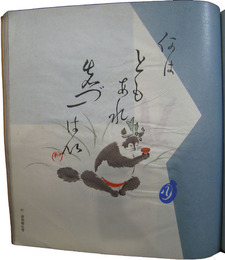 何は
ともあれ
先づ一はい